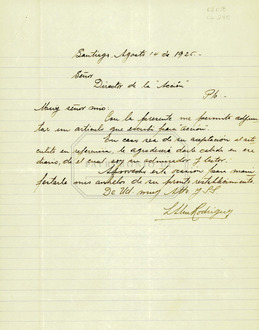 Santiago, Agosto 14 de 1925.-
Señor
Director de la "Acción"
Pte.-
Muy señor mio:
Con la presente me permito adjun-
tar un artículo que escribí para acción.
En caso sea de su aceptación el artí-
culito en referencia, le agradecería darle cabida en ese
diario, de el cual soy su admirador y lector.
Aprovecho esta ocasión para mani-
festarle mis anhelos de su pronto restablecimiento.
De Ud. muy Atto. y S.S.
Rodriguez